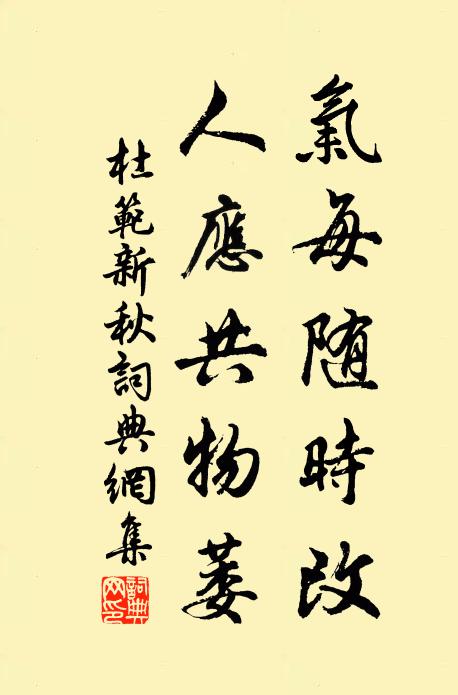 氣每随時改
人應共物萎
杜範新秋詞典網集
詞典網印